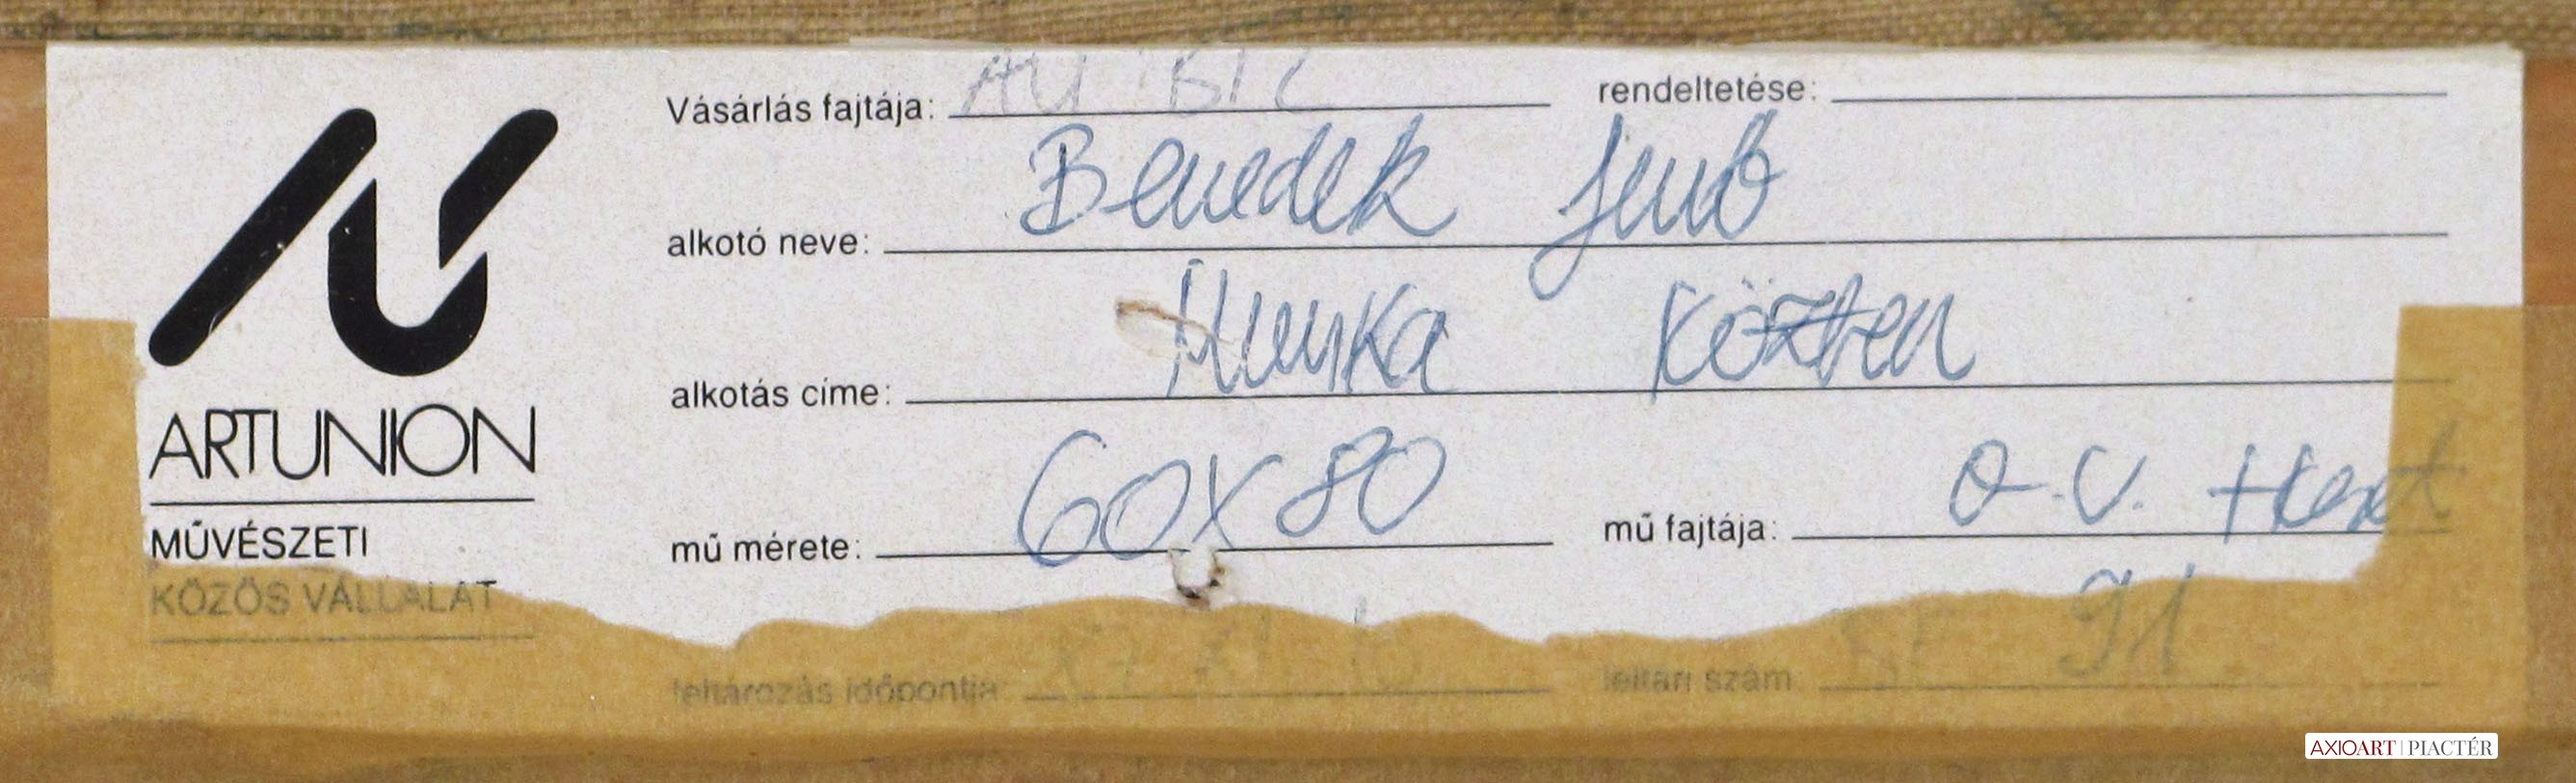 Vásárlás fajtája: AU BIZ rendeltetése:
alkotó neve: Benedek Jenő
alkotás címe: Munka közben
mű mérete: 60X80 mű fajtája: o.v. +keret
leltározás időpontja: leltári szám: 91
ARTUNION
MŰVÉSZETI
KÖZÖS VÁLLALAT
AXIOART | PIACTÉR